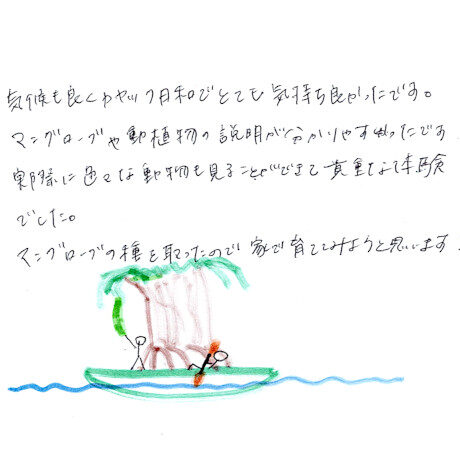 気候も良くカヤック日和でとても気持ち良かったです。
マングローブや動植物の説明が分かりやすかったです
実際に色々な動物も見ることができて貴重な体験
でした。
マングローブの種を取ったので家で育ててみようと思います.